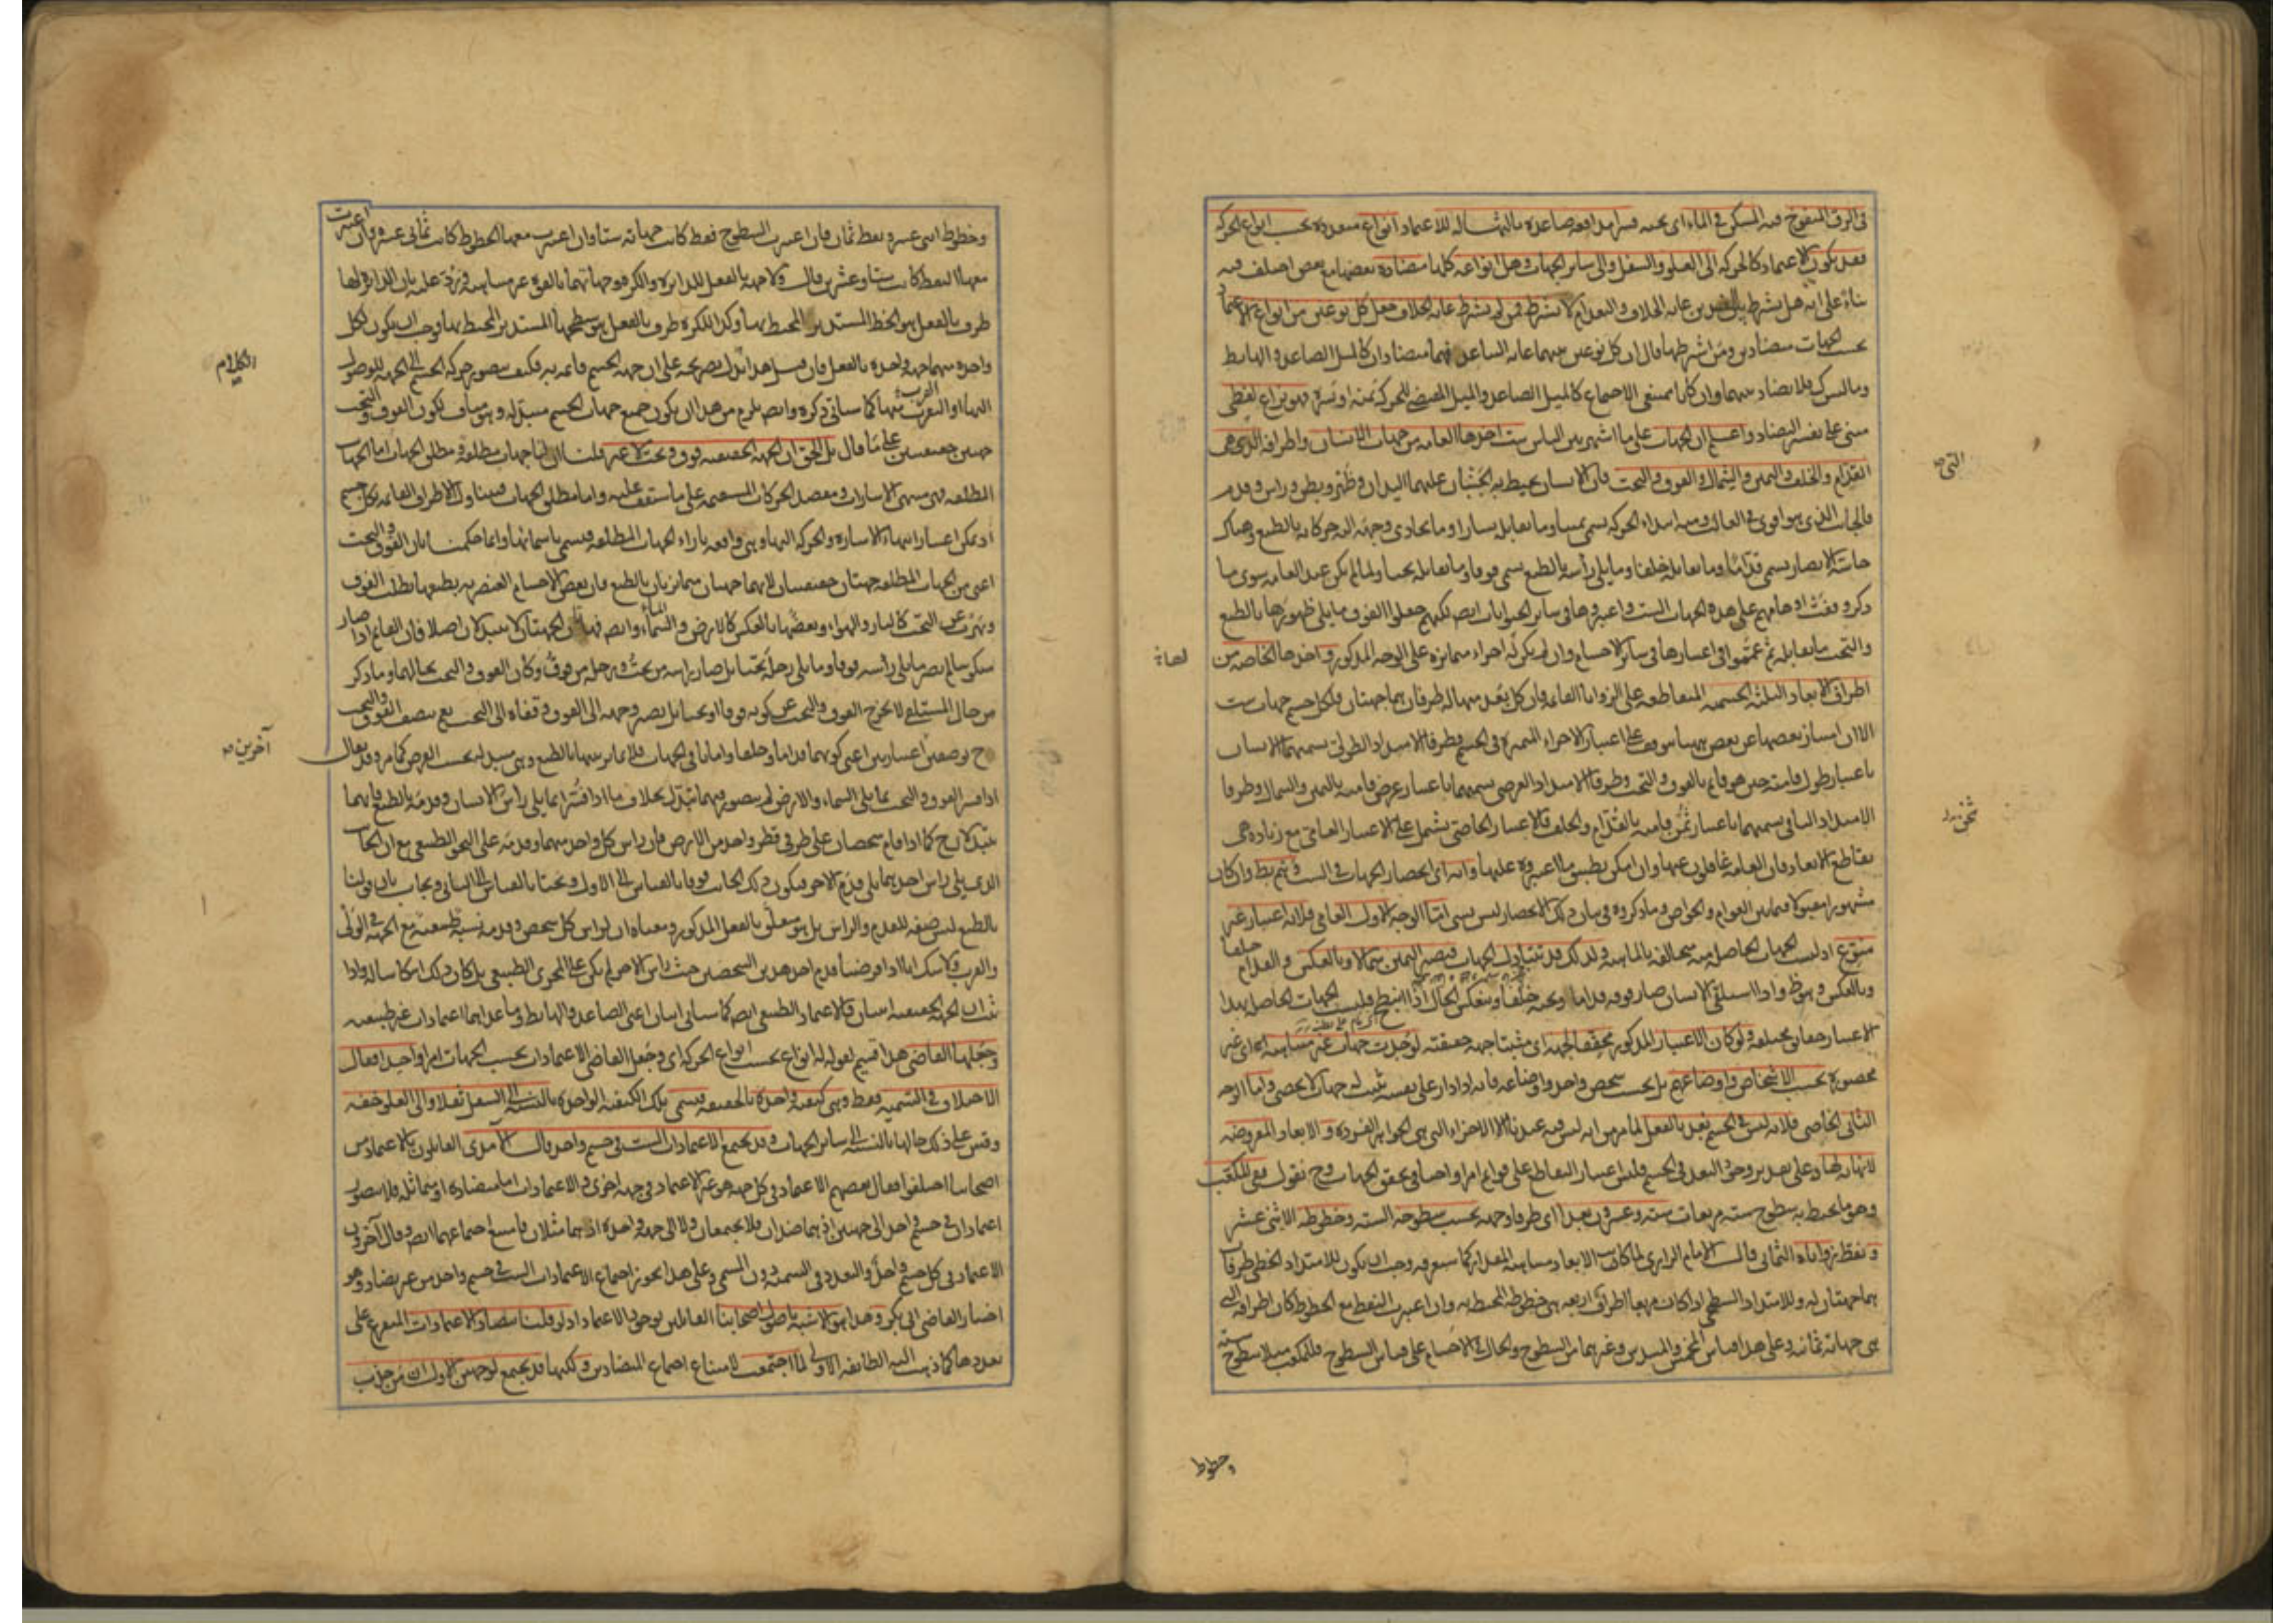 في الزق المنفوخ فيه المسكن في الماء اى تحته قسرا مدافعة صاعدة بالنسبة له للاعتماد انواع متعددة بحسب انواع الحركة
فقد يكون الاعتماد كالحركة الى العلو والسفل والى سائر الجهات وهل انواعه كلها متضادة بعضها مع بعض اختلف فيه
بناء على انه هل يشترط بين الضدين غاية الخلاف والبعد ام لا يشترط فمن لم يشترط غاية الخلاف جعل كل نوعين من انواع الاعتماد
بحسب الجهات متضادين ومن اشترطها قال ان كل نوعين بينهما غاية التباعد فهما متضادان كالميل الصاعد والهابط
وما ليس كذلك فلا تضاد بينهما وان كانا ممتنعى الاجتماع كالميل الصاعد والميل المقتضى للحركة يمنة او يسرة فهو نزاع لفظى
مبنى على تفسير التضاد واعلم ان الجهات على ما اشتهر بين الناس ست اخذها العامة من جهات الانسان واطرافه الذى هى
القدام والخلف واليمين والشمال والفوق والتحت فان الانسان يحيط به جنبان عليهما اليدان وظهر وبطن وراس وقدم
فالجانب الذى هو اقوى في الغالب ومنه ابتداء الحركة يسمى يمينا وما يقابله يسارا وما يحاذى وجهه اليه حركاته بالطبع وهناك
حاسة الابصار يسمى قداما وما يقابله خلفا وما يلى رأسه بالطبع يسمى فوقا وما يقابله تحتا ولما لم يكن عند العامة سوى ما
ذكر وقفت اوهامهم على هذه الجهات الست واعتبروها في سائر الحيوانات ايضا لكنهم جعلوا الفوق ما يلى ظهورها بالطبع
والتحت ما يقابله ثم عمموا اعتبارها في سائر الاجسام وان لم يكن لها اجزاء متمايزة على الوجه المذكور واخذها الخاصة من
اطراف الابعاد الثلثة الجسمية المتقاطعة على الزوايا القائمة فان كل بعد منها له طرفان هما جهتان فلكل جسم جهات ست
الا ان امتياز بعضها عن بعض ههنا يتوقف على اعتبار الاجزاء المتميزة في الجسم فطرفا الامتداد الطولى يسميهما الانسان
باعتبار طول قامته حين هو قائم بالفوق والتحت وطرفا الامتداد العرضى يسميهما باعتبار عرض قامته باليمين والشمال وطرفا
الامتداد الباقى يسميهما باعتبار ثخن قامته بالقدام والخلف فالاعتبار الخاصى يشتمل على الاعتبار العامى مع زيادة هى
تقاطع الابعاد فان العامة غافلون عنها وان امكن تطبيق ما اعتبروه عليها وانه اى انحصار الجهات في الست وهم بط وان كان
مشهورا مقبولا فيما بين العوام والخواص وما ذكروه في بيان ذلك الانحصار ليس بشئ اما الوجه الاول العامى فلانه اعتبار غير
متنوع اذ ليست الجهات الحاصلة به متخالفة بالماهية ولذلك قد تتبدل الجهات فيصير اليمين شمالا وبالعكس والقدام خلفا
وبالعكس وهو ظ واذا استلقى الانسان صار فوقه قداما وتحته خلفا وينعكس الحال اذا انبطح فليست الجهات الحاصلة بهذا
الاعتبار حقائق مختلفة ولو كان الاعتبار المذكور محققا للجهة اى مثبتا جهة حقيقية لوجدت جهات غير متناهية اى غير
محصورة بحسب الاشخاص واوضاعهم بل بحسب شخص واحد واوضاعه فانه اذا دار على نفسه تثبت له جهات لا تحصى واما الوجه
الثانى الخاصى فلانه ليس في الجسم بعد بالفعل لما مر من انه ليس فيه عندنا الا الاجزاء التى هى الجواهر الفردة والابعاد المفروضة
لا نهاية لها وعلى تقدير وجود البعد في الجسم فليس اعتبار التقاطع على قوائم امرا واجبا في تحقق الجهات وح نقول ففى المكعب
وهو ما يحيط به سطوح ستة مربعات ستة وعشرون بعدا اى طرفا وجهة بحسب سطوحه الستة وخطوطه الاثنى عشر
ونقط زواياه الثمانى قال الامام الرازى لما كانت الابعاد متناهية المقدار كما ستعرفه وجب ان يكون للامتداد الخطى طرفان
هما جهتان له وللامتداد السطحى اذا كان مربعا اطراف اربعة هى خطوطه المحيطة به وان اعتبرت النقط مع الخطوط كان اطرافه التى
هى جهاته ثمانية وعلى هذا قياس المخمس والمسدس وغيرهما من السطوح والحال في الاجسام على قياس السطوح فللمكعب مثلا سطوح ستة
التى صح
لها
ثخن
وخطوط
وخطوط اثنى عشر ونقط ثمان فان اعتبرت السطوح فقط كانت جهاته ستا وان اعتبرت معها الخطوط كانت ثمانى عشرة وان اعتبرت
معها النقط كانت ستا وعشرين قال ولا جهة بالفعل للدائرة والكرة وجهاتهما بالقوة غير متناهية ورد عليه بان الدائرة لها
طرف بالفعل هو الخط المستدير المحيط بها وكذا للكرة طرف بالفعل هو سطحها المستدير المحيط بها وجب ان يكون لكل
واحدة منهما جهة واحدة بالفعل فان قيل هذا يدل بصريحه على ان جهة الجسم قائمة به فكيف يتصور حركة الجسم الى الجهة للوصول
اليها او القرب منها كما سيأتى ذكره وايضا يلزم من هذا ان يكون جميع جهات الجسم متبدلة وهو مناف لكون الفوق والتحت
جهتين حقيقيتين على ما قال بل الحق ان الجهة الحقيقية فوق وتحت لا غير قلنا ان لنا جهات مطلقة ومطلق الجهات اما الجهات
المطلقة فهى منتهى الاشارات ومقصد الحركات المستقيمة على ما ستقف عليه واما مطلق الجهات فيتناول الاطراف القائمة بكل جسم
اذ يمكن اعتبار انتهاء الاشارة والحركة اليها وهى واقعة بازاء الجهات المطلقة فيسمى باسمائها وانما حكمنا بان الفوق والتحت
اعنى من الجهات المطلقة جهتان حقيقيتان لانهما جهتان متمايزتان بالطبع فان بعض الاجسام العنصرية بطبعها يطلب الفوق
ويهرب عن التحت كالنار والهواء وبعضها بالعكس كالارض والماء وايضا فهاتان الجهتان لا تتبدلان اصلا فان القائم اذا صار
منكوسا لم يصر ما يلى رأسه فوقا وما يلى رجله تحتا بل صار رأسه من تحت ورجله من فوق وكان الفوق والتحت بحالهما وما ذكر
من حال المستلقى لا يخرج الفوق والتحت عن كونه فوقا او تحتا بل يصير وجهه الى الفوق وقفاه الى التحت نعم يتصف الفوق والتحت
ح بوصفين اعتباريين اعنى كونهما قداما وخلفا واما باقى الجهات فلا تمايز بينها بالطبع وهى متبدلة بحسب الفرض كما مر وقد يقال
اذا فسر الفوق والتحت بما يلى السماء والارض لم يتصور فيهما تبدل بخلاف ما اذا فسرا بما يلى رأس الانسان وقدمه بالطبع فانهما
يتبدلان ح كما اذا قام شخصان على طرفى قطر واحد من الارض فان راس كل واحد منهما وقدمه على النحو الطبيعى مع ان الجانب
الذى يلى راس احدهما يلى قدم الاخر فيكون ذلك الجانب فوقا بالقياس الى الاول وتحتا بالقياس الى الثانى ويجاب بان قولنا
بالطبع ليس صفة للقدم والراس بل هو متعلق بالفعل المذكور ومعناه ان لراس كل شخص وقدمه نسبة طبيعية مع الجهة في الولى
والقرب ولا شك انا اذا فرضنا قدم احد هذين الشخصين حيث راس الاخر لم يكن على المجرى الطبيعى بل كان ذلك انتكاسا له واذا
ثبت ان الجهة الحقيقية اثنتان فالاعتماد الطبيعى ايضا كما سيأتى اثنان اعنى الصاعد والهابط وما عداهما اعتمادات غير طبيعية
وجعلها القاضى هذا قسيم لقوله له انواع بحسب انواع الحركة اى وجعل القاضى الاعتمادات بحسب الجهات امرا واحدا فقال
الاختلاف في التسمية فقط وهى كيفية واحدة بالحقيقة فيسمى تلك الكيفية الواحدة بالنسبة الى السفل ثقلا والى العلو خفة
وقس على ذلك حالها بالنسبة الى سائر الجهات وقد يجتمع الاعتمادات الست في جسم واحد قال الآمدى القائلون بالاعتماد من
اصحابنا اختلفوا فقال بعضهم الاعتماد في كل جهة هو غير الاعتماد في جهة اخرى والاعتمادات اما متضادة او متماثلة فلا يتصور
اعتمادان في جسم واحد الى جهتين اذ هما ضدان فلا يجتمعان ولا الى جهة واحدة اذ هما مثلان فامتنع اجتماعهما ايضا وقال آخرون
الاعتماد في كل جسم واحد والتعدد في التسمية دون المسمى وعلى هذا يجوز اجتماع الاعتمادات الست في جسم واحد من غير تضاد وهو
اختيار القاضى ابى بكر وهذا هو الاشبه باصول اصحابنا القائلين بوجود الاعتماد اذ لو قلنا بتضاد الاعتمادات المتفرع على
تعددها كما ذهب اليه الطائفة الاولى لما اجتمعت لامتناع اجتماع المتضادين ولكنها قد يجتمع لوجهين الاول ان من جذب
الكلام
آخرين صح